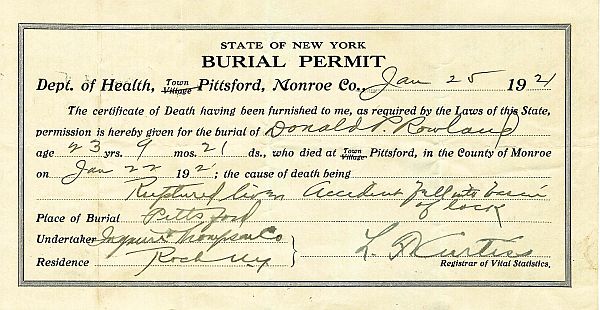 STATE OF NEW YORK
BURIAL PERMIT
Dept. of Health, Town Village Pittsford, Monroe Co., Jan 25 1921
The certificate of Death having been furnished to me, as required by the Laws of this State,
permission is hereby given for the burial of Donald P. Rowland
age 23 yrs. 9 mos. 21 ds., who died at Town Village Pittsford, in the County of Monroe
on Jan 22 192 ; the cause of death being
Ruptured liver Accident Fall into
of lock
Place of Burial Pittsford
Undertaker Thompson Co
Residence Roch NY
L. Curtiss
Registrar of Vital Statistics.